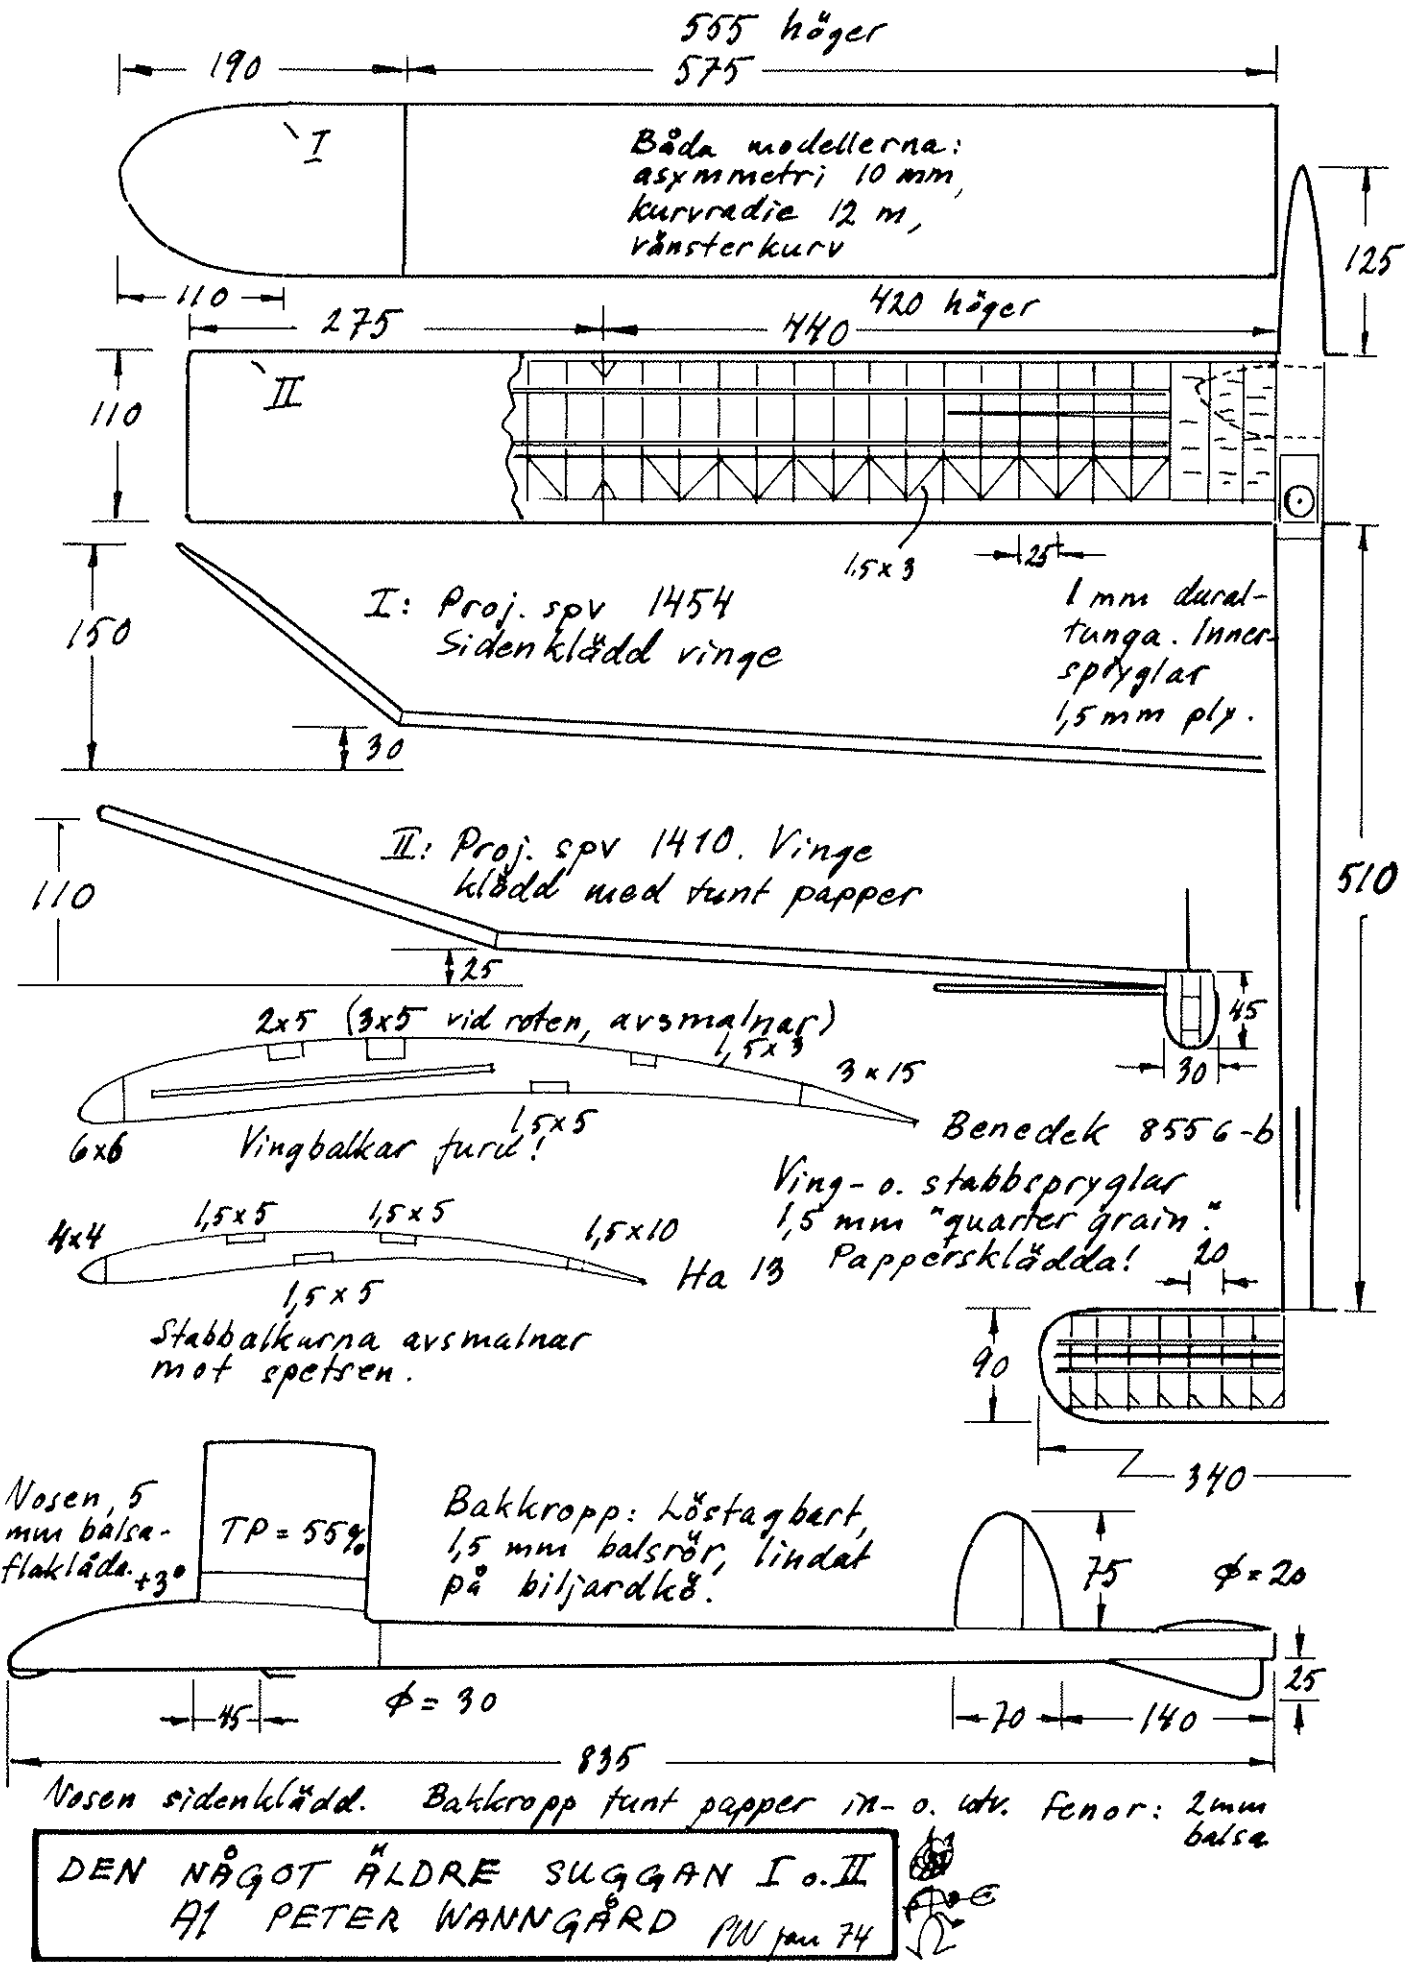 555 höger
190
575
I
Båda modellerna:
asymmetri 10 mm,
kurvradie 12 m,
vänsterkurv
125
110
420 höger
275
440
110
II
1,5x3
25
150
I: Proj. spv 1454
Sidenklädd vinge
1 mm dural-
tunga. Inner-
spryglar
1,5 mm ply.
30
II: Proj. spv 1410. Vinge
klädd med tunt papper
110
510
25
45
30
2x5 (3x5 vid roten, avsmalnar)
1,5x3
3x15
6x6
Vingbalkar furu!
1,5x5
Benedek 8556-b
Ving- o. stabbspryglar
1,5 mm "quarter grain".
Pappersklädda!
20
4x4
1,5x5
1,5x5
1,5x10
Ha 13
1,5x5
Stabbalkarna avsmalnar
mot spetsen.
90
340
Nosen, 5
mm balsa-
flaklåda.
+3°
TP = 55%
Bakkropp: Löstagbart,
1,5 mm balsrör, lindat
på biljardkö.
75
ϕ = 20
25
45
ϕ = 30
70
140
835
Nosen sidenklädd. Bakkropp tunt papper in- o. utv. Fenor: 2mm
balsa
DEN NÅGOT ÄLDRE SUGGAN I o. II
A1 PETER WANNGÅRD PW jan 74